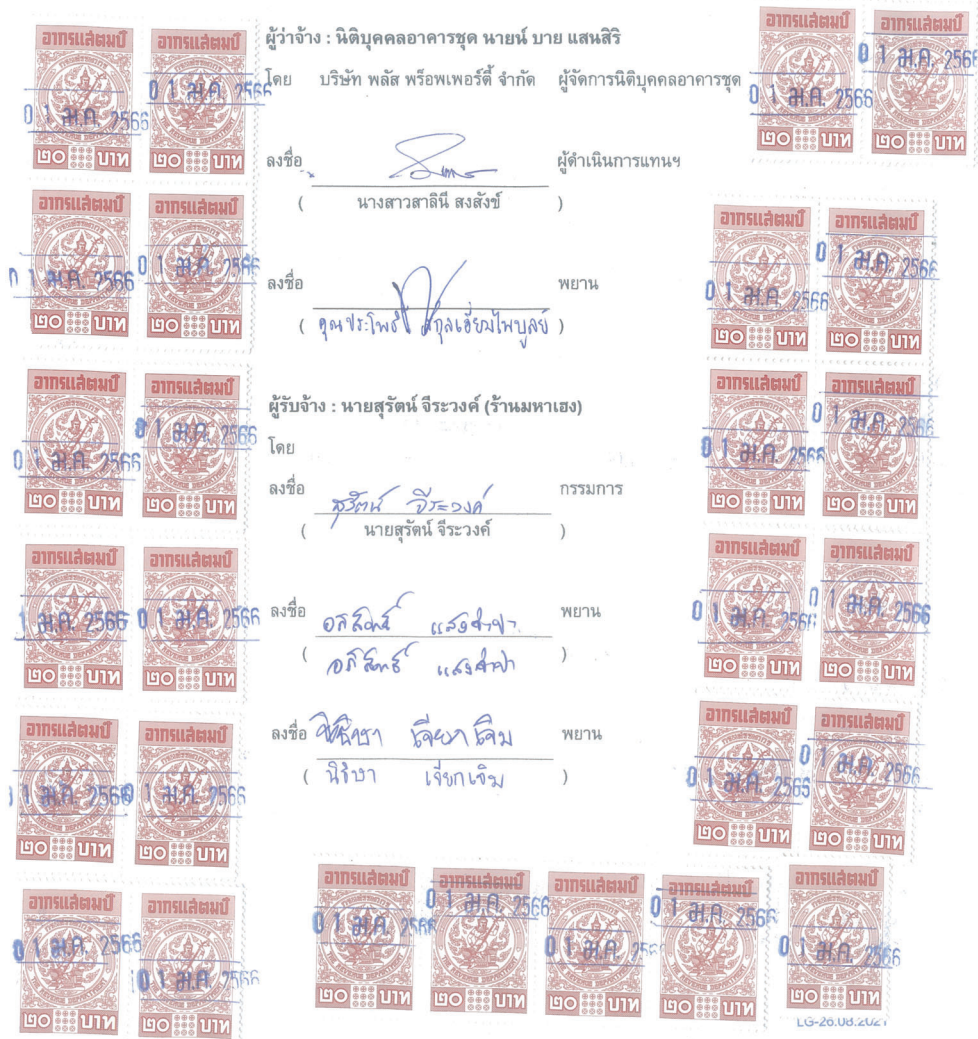 ผู้ว่าจ้าง : นิติบุคคลอาคารชุด นายน์ บาย แสนสิริ
โดย บริษัท พลัส พร็อพเพอร์ตี้ จำกัด ผู้จัดการนิติบุคคลอาคารชุด
ลงชื่อ ผู้ดำเนินการแทนฯ
( นางสาวสาลินี สงสังข์ )
ลงชื่อ พยาน
( คุณประโพธิ์ สกุลเอี่ยมไพบูลย์ )
ผู้รับจ้าง : นายสุรัตน์ จีระวงค์ (ร้านมหาเฮง)
โดย
ลงชื่อ สุรัตน์ จีระวงค์ กรรมการ
( นายสุรัตน์ จีระวงค์ )
ลงชื่อ อภิสิทธิ์ แสงจำปา พยาน
( อภิสิทธิ์ แสงจำปา )
ลงชื่อ พยาน
( เจียกเจิม )
อากรแสตมป์
๒๐ บาท
01 ม.ค. 2566
LG-26.08.2021